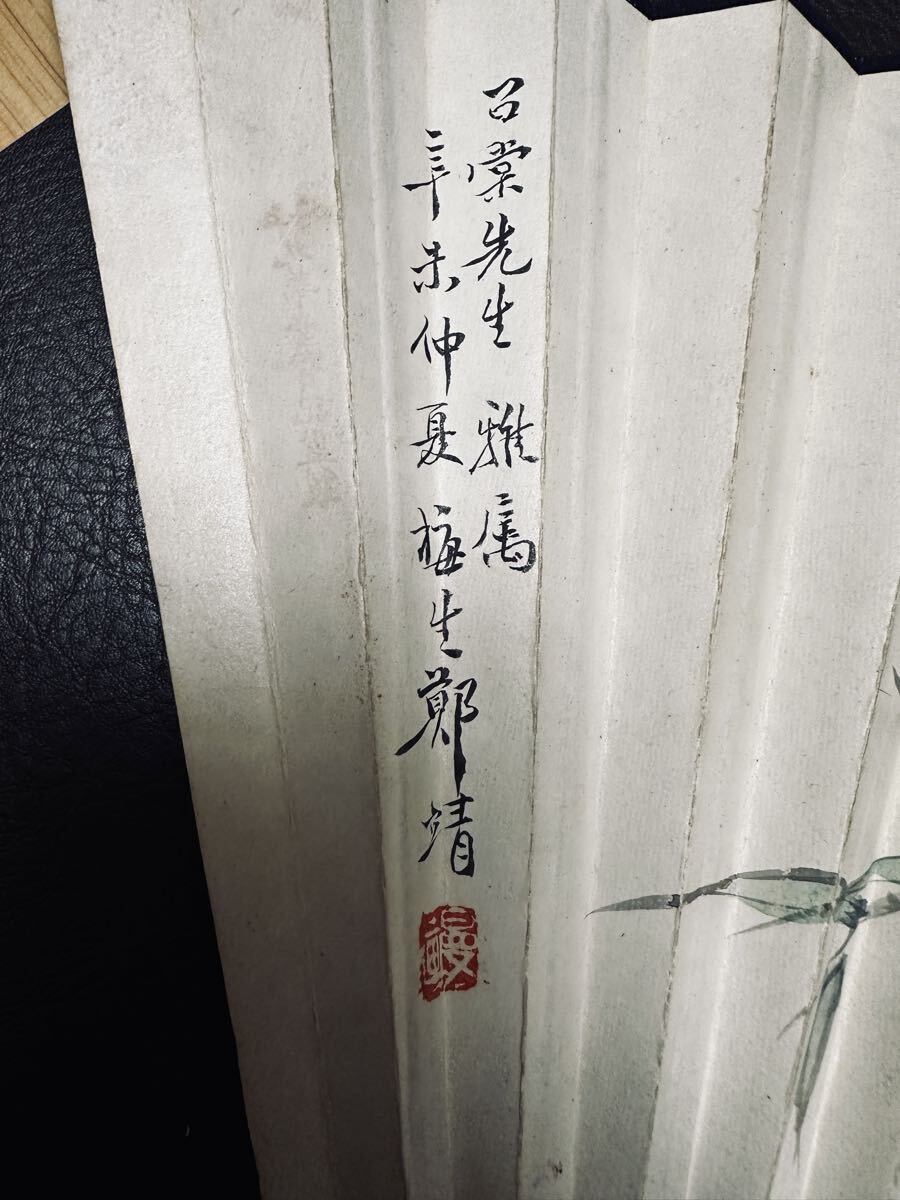 召棠先生 雅属
辛未仲夏 梅生鄭靖